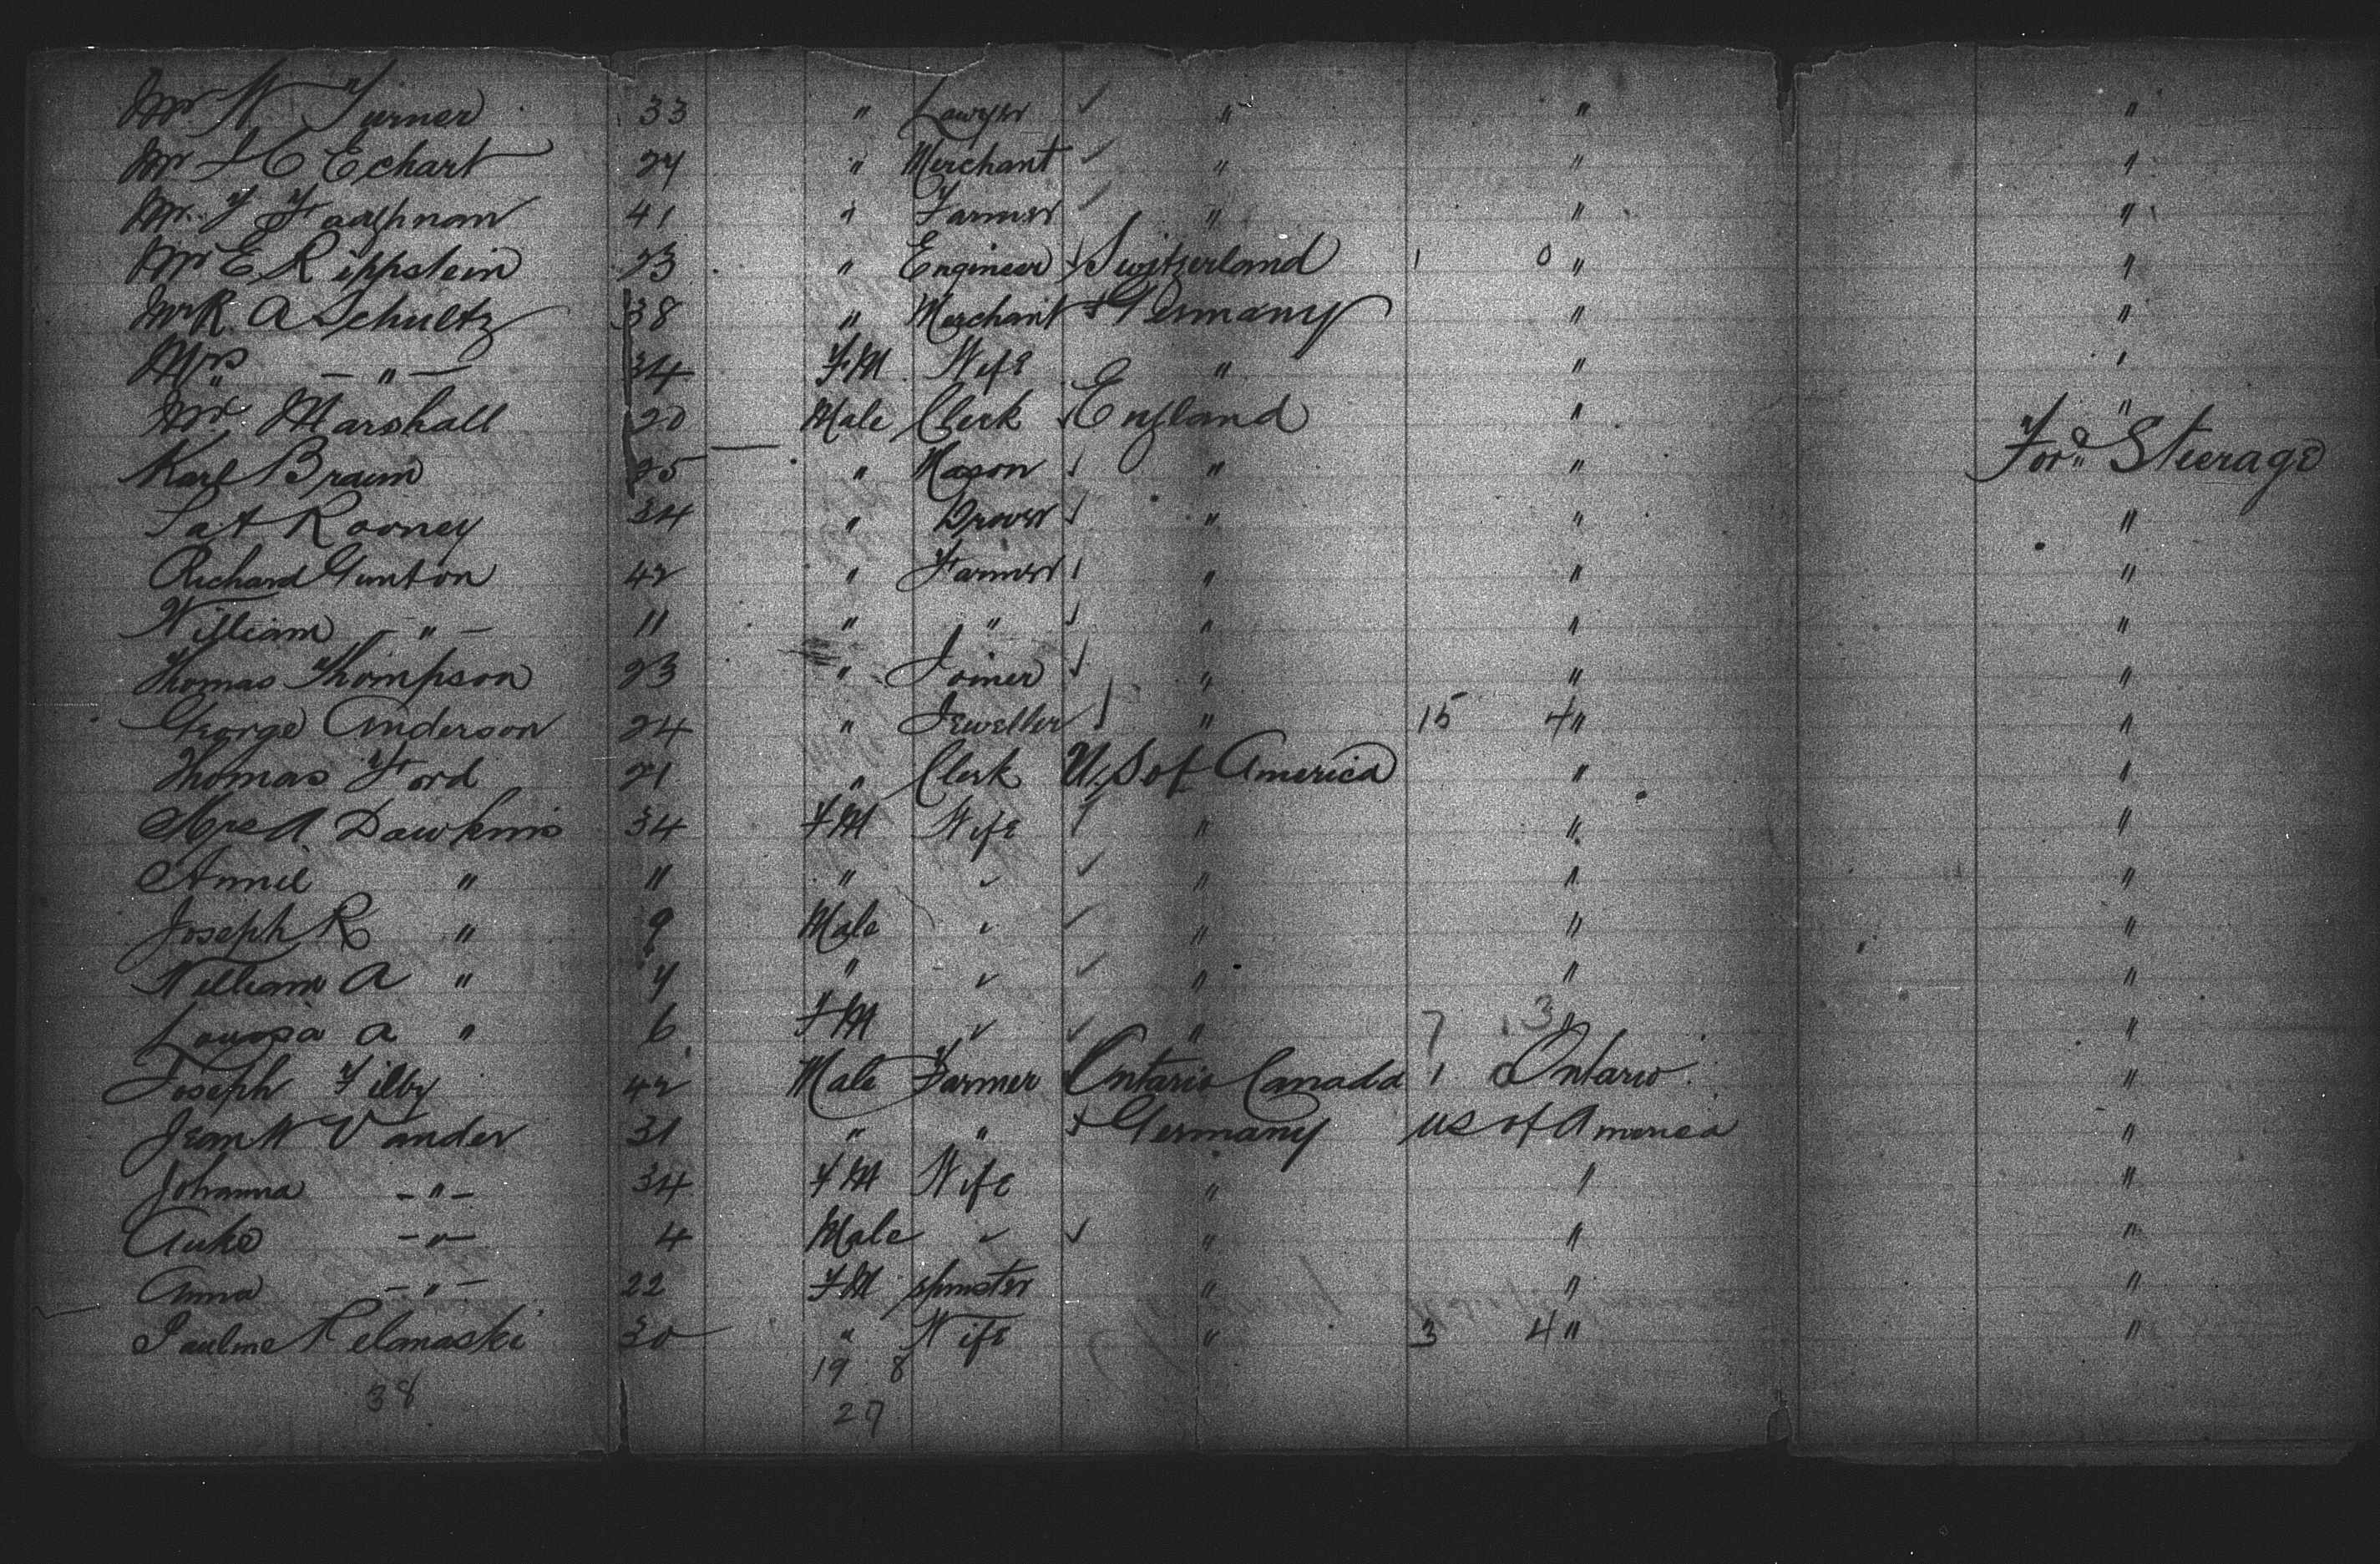 Mr W. Turner 33 " Lawyer ✓ " " "
Mr H C Echart 27 " Merchant ✓ " " "
Mr. J 41 " Farmer ✓ " " "
Mr E Rippstein 23 " Engineer ✓ Switzerland 1 0 " "
Mr R. A Schultz 38 " Merchant + Germany " "
Mrs — " — 34 FM Wife " " "
Mr Marshall 20 Male Clerk ✓ England " "
Karl Braun 25 " Mason ✓ " " For.d Steerage
Pat Rooney 34 " Drover ✓ " " "
Richard Gunton 42 " Farmer ✓ " " "
William — " — 11 " " ✓ " " "
Thomas Thompson 23 " Joiner ✓ " " "
George Anderson 24 " Jeweller ✓ " 15 4 " "
Thomas Ford 21 " Clerk U.S of America " "
Mrs A Dawkins 34 FM Wife ✓ " " "
Annie " 11 " ✓ ✓ " " "
Joseph R " 9 Male ✓ ✓ " " "
William A " 7 " ✓ ✓ " " "
Louisa A " 6 FM ✓ ✓ " 7 3 " "
Joseph Filby 42 Male Farmer Ontario Canada 1 0 Ontario "
Jean W Vander 31 " " + Germany US of America "
Johanna — " — 34 FM Wife " " "
Auke — " — 4 Male ✓ ✓ " " "
Anna — " — 22 FM Spinster " " "
Pauline Relmaski 30 " Wife " 3 4 " "
19 8
38
27